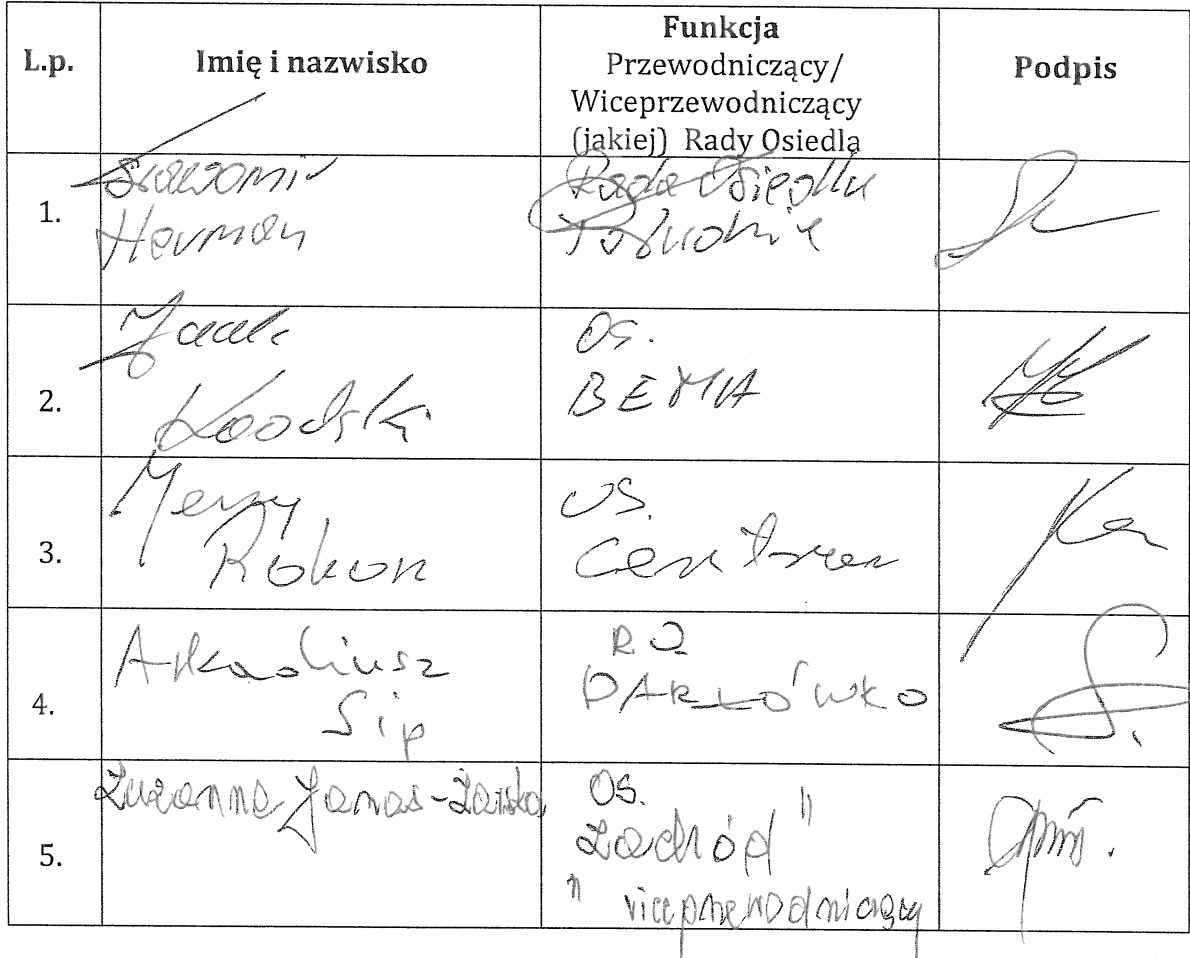 L.p.
Imię i nazwisko
Funkcja
Przewodniczący/
Wiceprzewodniczący
(jakiej) Rady Osiedla
Podpis
1.
Sławomir
Herman
Rada Osiedla
Południe
2.
Jacek
os.
BEMA
3.
Jerzy
Rokon
os.
Centrum
4.
Arkadiusz
Sip
R.O.
DARŁÓWKO
5.
Zuzanna Janas-Żarska
os.
Zachód"
" viceprzewodniczący